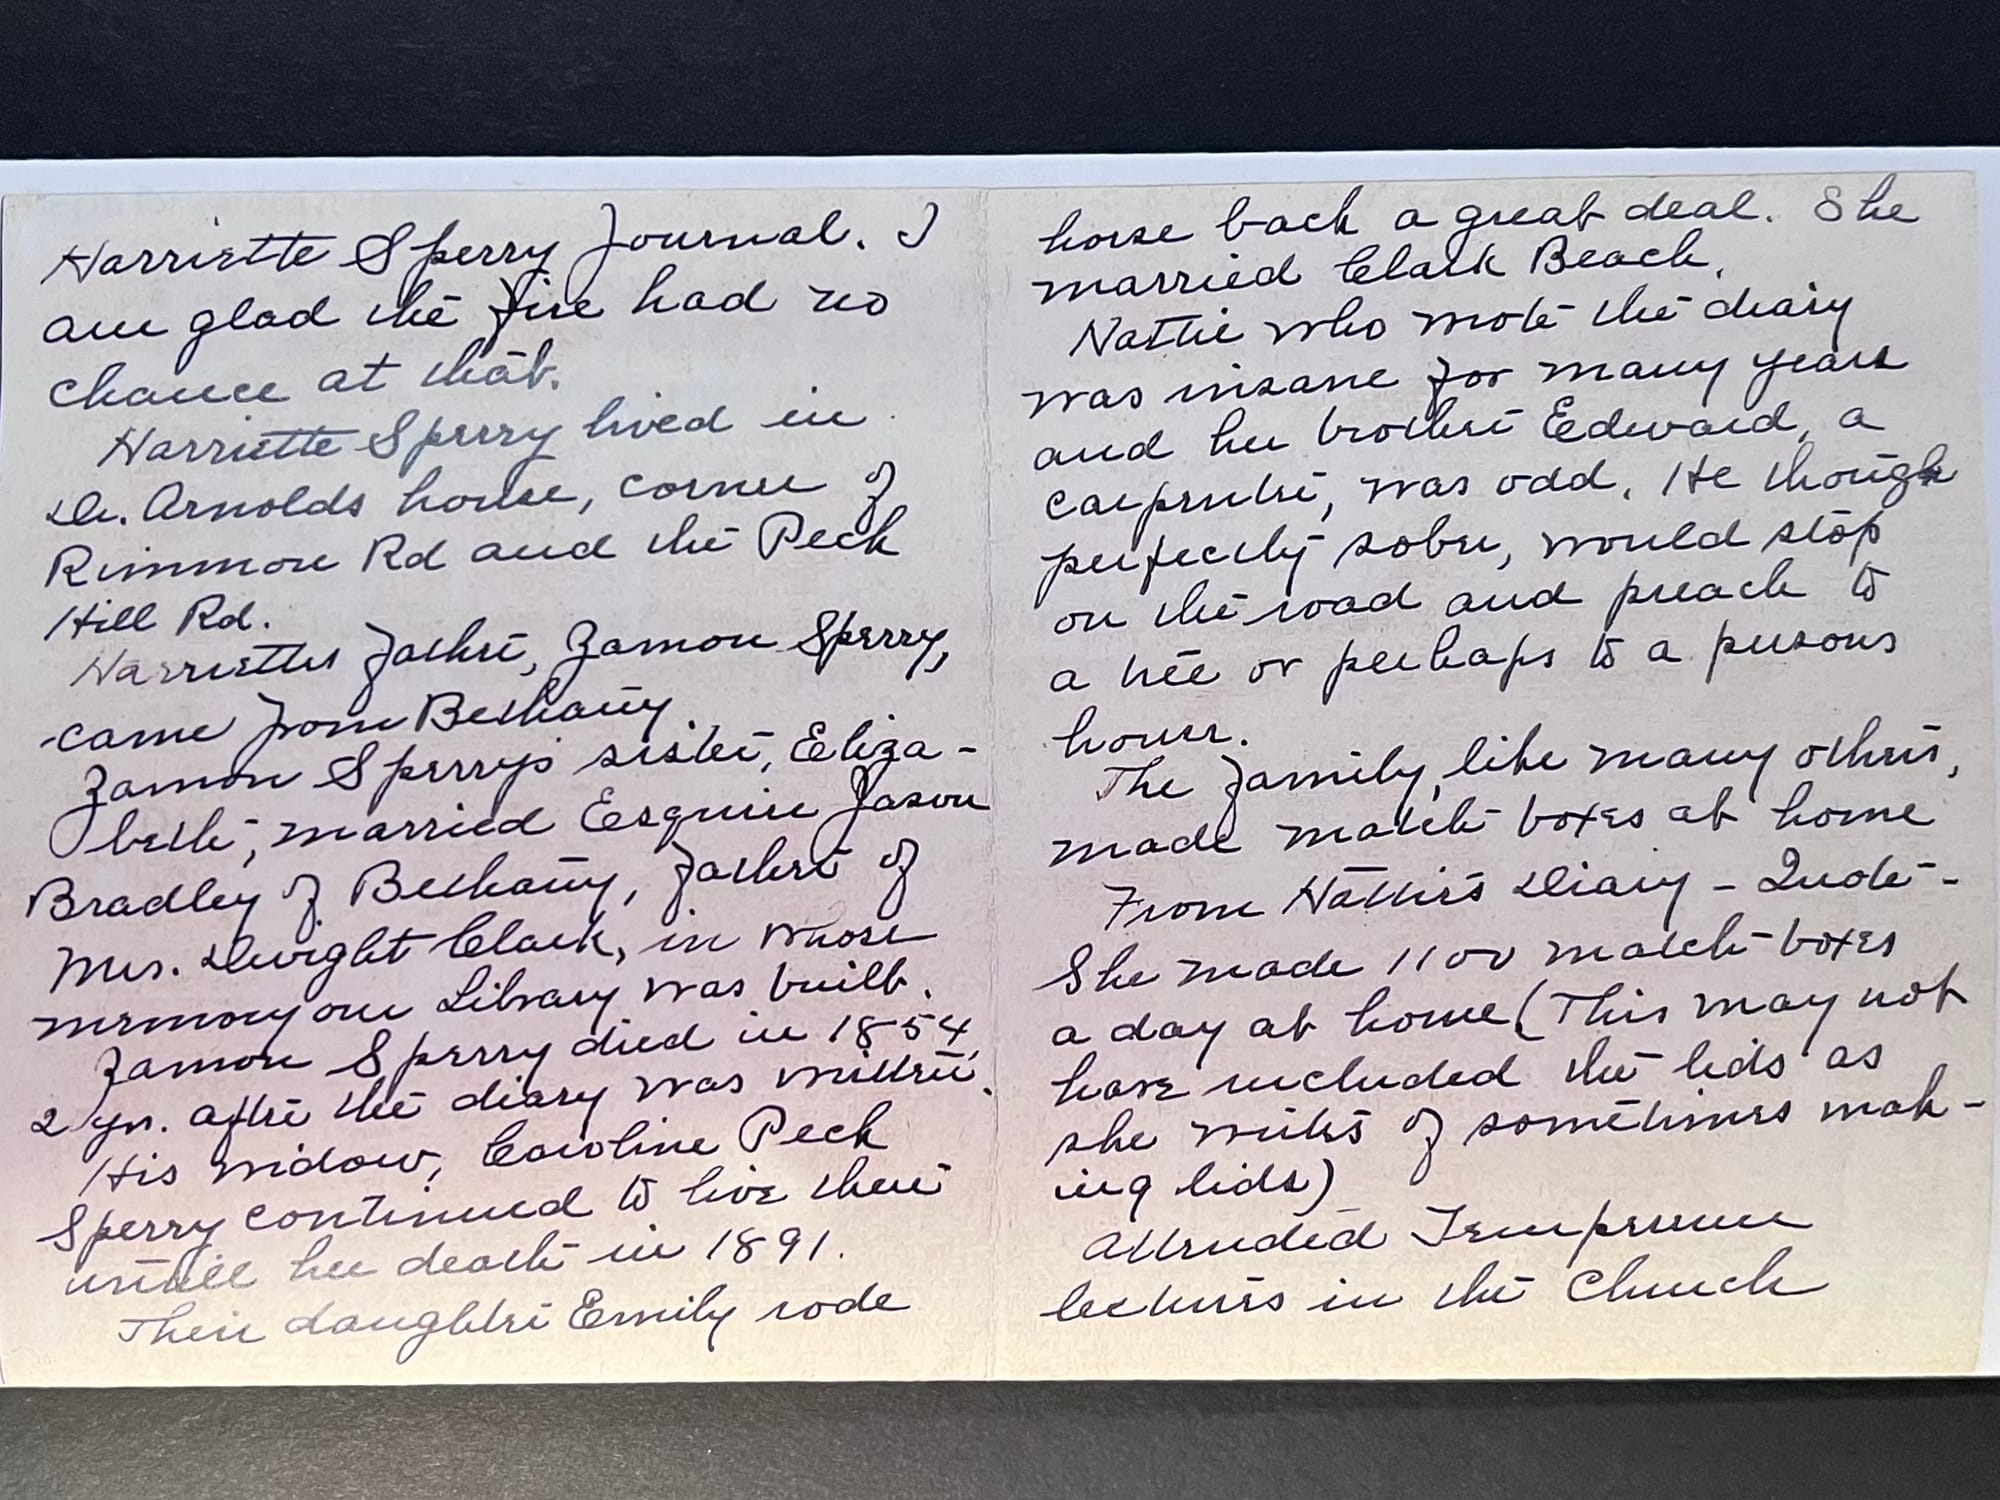 Harriette Sperry Journal. I
am glad the fire had no
chance at that.
Harriette Sperry lived in
Dr. Arnolds house, corner of
Rimmon Rd and the Peck
Hill Rd.
Harriettes father, Zamon Sperry,
came from Bethany.
Zamon Sperry's sister, Eliza-
beth, married Esquire Jason
Bradley of Bethany, father of
Mrs. Dwight Clark, in whose
memory our Library was built.
Zamon Sperry died in 1854,
2 yr. after the diary was written.
His widow, Caroline Peck
Sperry continued to live there
untill her death in 1891.
Their daughter Emily rode
horse back a great deal. She
married Clark Beach.
Hattie who wrote the diary
was insane for many years
and her brother Edward, a
carpenter, was odd. He though
perfectly sober, would stop
on the road and preach to
a tree or perhaps to a persons
house.
The family, like many others,
made match boxes at home
From Hattie's Diary - Quote -
She made 1100 match-boxes
a day at home (This may not
have included the lids as
she writes of sometimes mak-
ing lids)
Attended Temperence
lectures in the Church